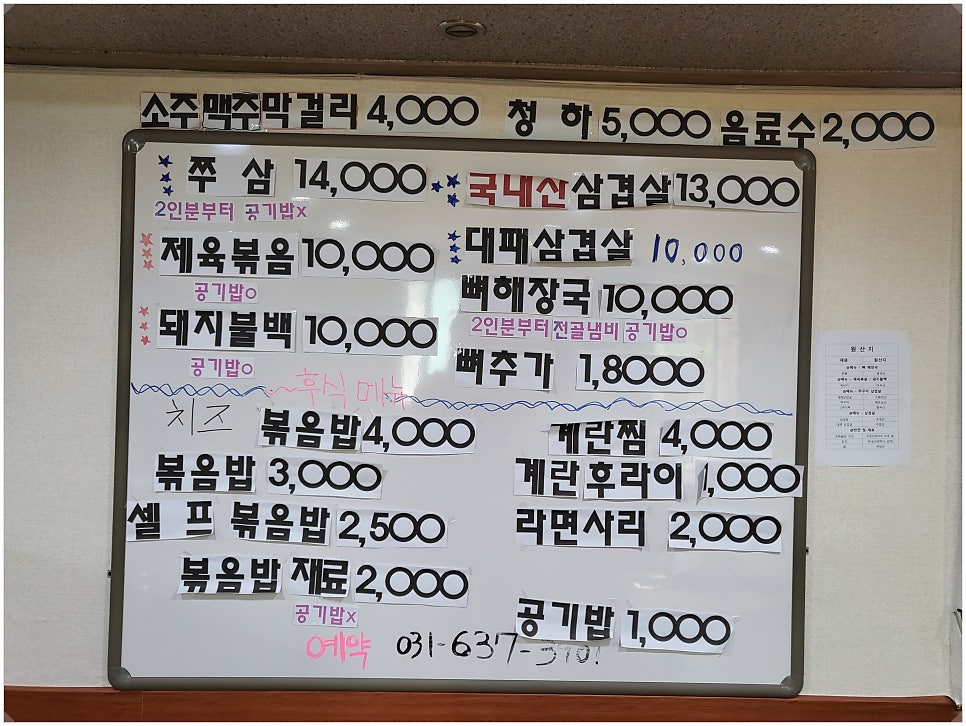 소주맥주막걸리 4,000 청 하 5,000 음료수 2,000
쭈 삼 14,000
2인분부터 공기밥x
제육볶음 10,000
공기밥o
돼지불백 10,000
공기밥o
국내산삼겹살 13,000
대패삼겹살 10,000
뼈해장국 10,000
2인분부터 전골냄비 공기밥o
뼈추가 1,8000
후식 메뉴
치즈 볶음밥 4,000
볶음밥 3,000
셀 프 볶음밥 2,500
볶음밥 재료 2,000
공기밥x
계란찜 4,000
계란후라이 1,000
라면사리 2,000
공기밥 1,000
예약 031-637-
원 산 지